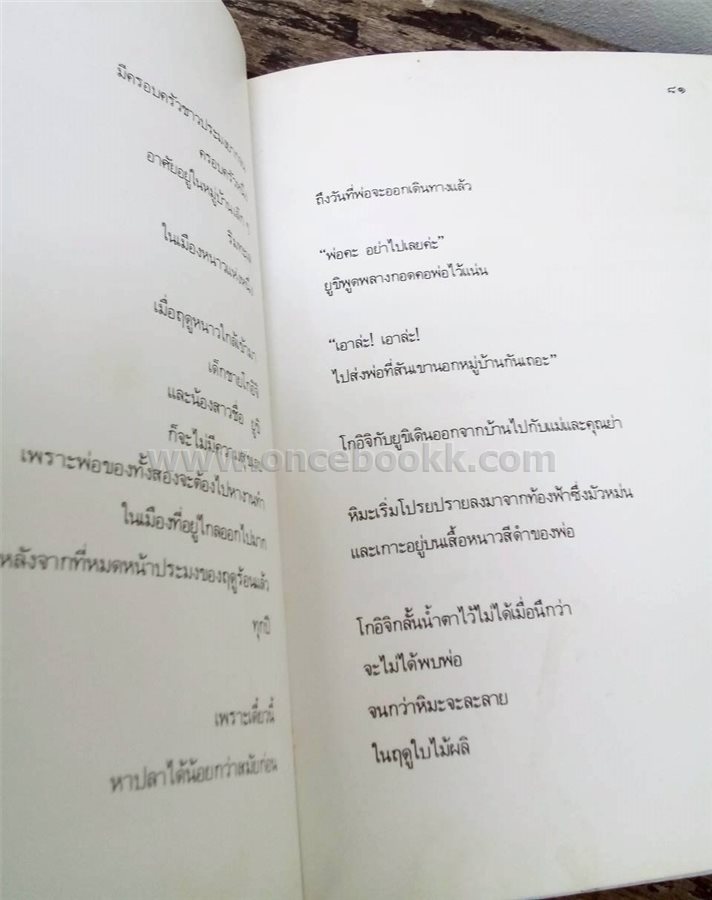 มีครอบครัวชาวประมงยากจน
ครอบครัวหนึ่ง
อาศัยอยู่ในหมู่บ้านเล็ก ๆ
ริมทะเล
ในเมืองหนาวแห่งหนึ่ง
เมื่อฤดูหนาวใกล้เข้ามา
เด็กชายโกอิจิ
และน้องสาวชื่อ ยูชิ
ก็จะไม่มีความสุขเลย
เพราะพ่อของทั้งสองจะต้องไปหางานทำ
ในเมืองที่อยู่ไกลออกไปมาก
หลังจากที่หมดหน้าประมงของฤดูร้อนแล้ว
ทุกปี
เพราะเดี๋ยวนี้
หาปลาได้น้อยกว่าสมัยก่อน
๘๑
ถึงวันที่พ่อจะออกเดินทางแล้ว
“พ่อคะ อย่าไปเลยค่ะ”
ยูชิพูดพลางกอดคอพ่อไว้แน่น
“เอาล่ะ! เอาล่ะ!
ไปส่งพ่อที่สันเขานอกหมู่บ้านกันเถอะ”
โกอิจิกับยูชิเดินออกจากบ้านไปกับแม่และคุณย่า
หิมะเริ่มโปรยปรายลงมาจากท้องฟ้าซึ่งมัวหม่น
และเกาะอยู่บนเสื้อหนาวสีดำของพ่อ
โกอิจิกลั้นน้ำตาไว้ไม่ได้เมื่อนึกว่า
จะไม่ได้พบพ่อ
จนกว่าหิมะจะละลาย
ในฤดูใบไม้ผลิ
www.oncebookk.com